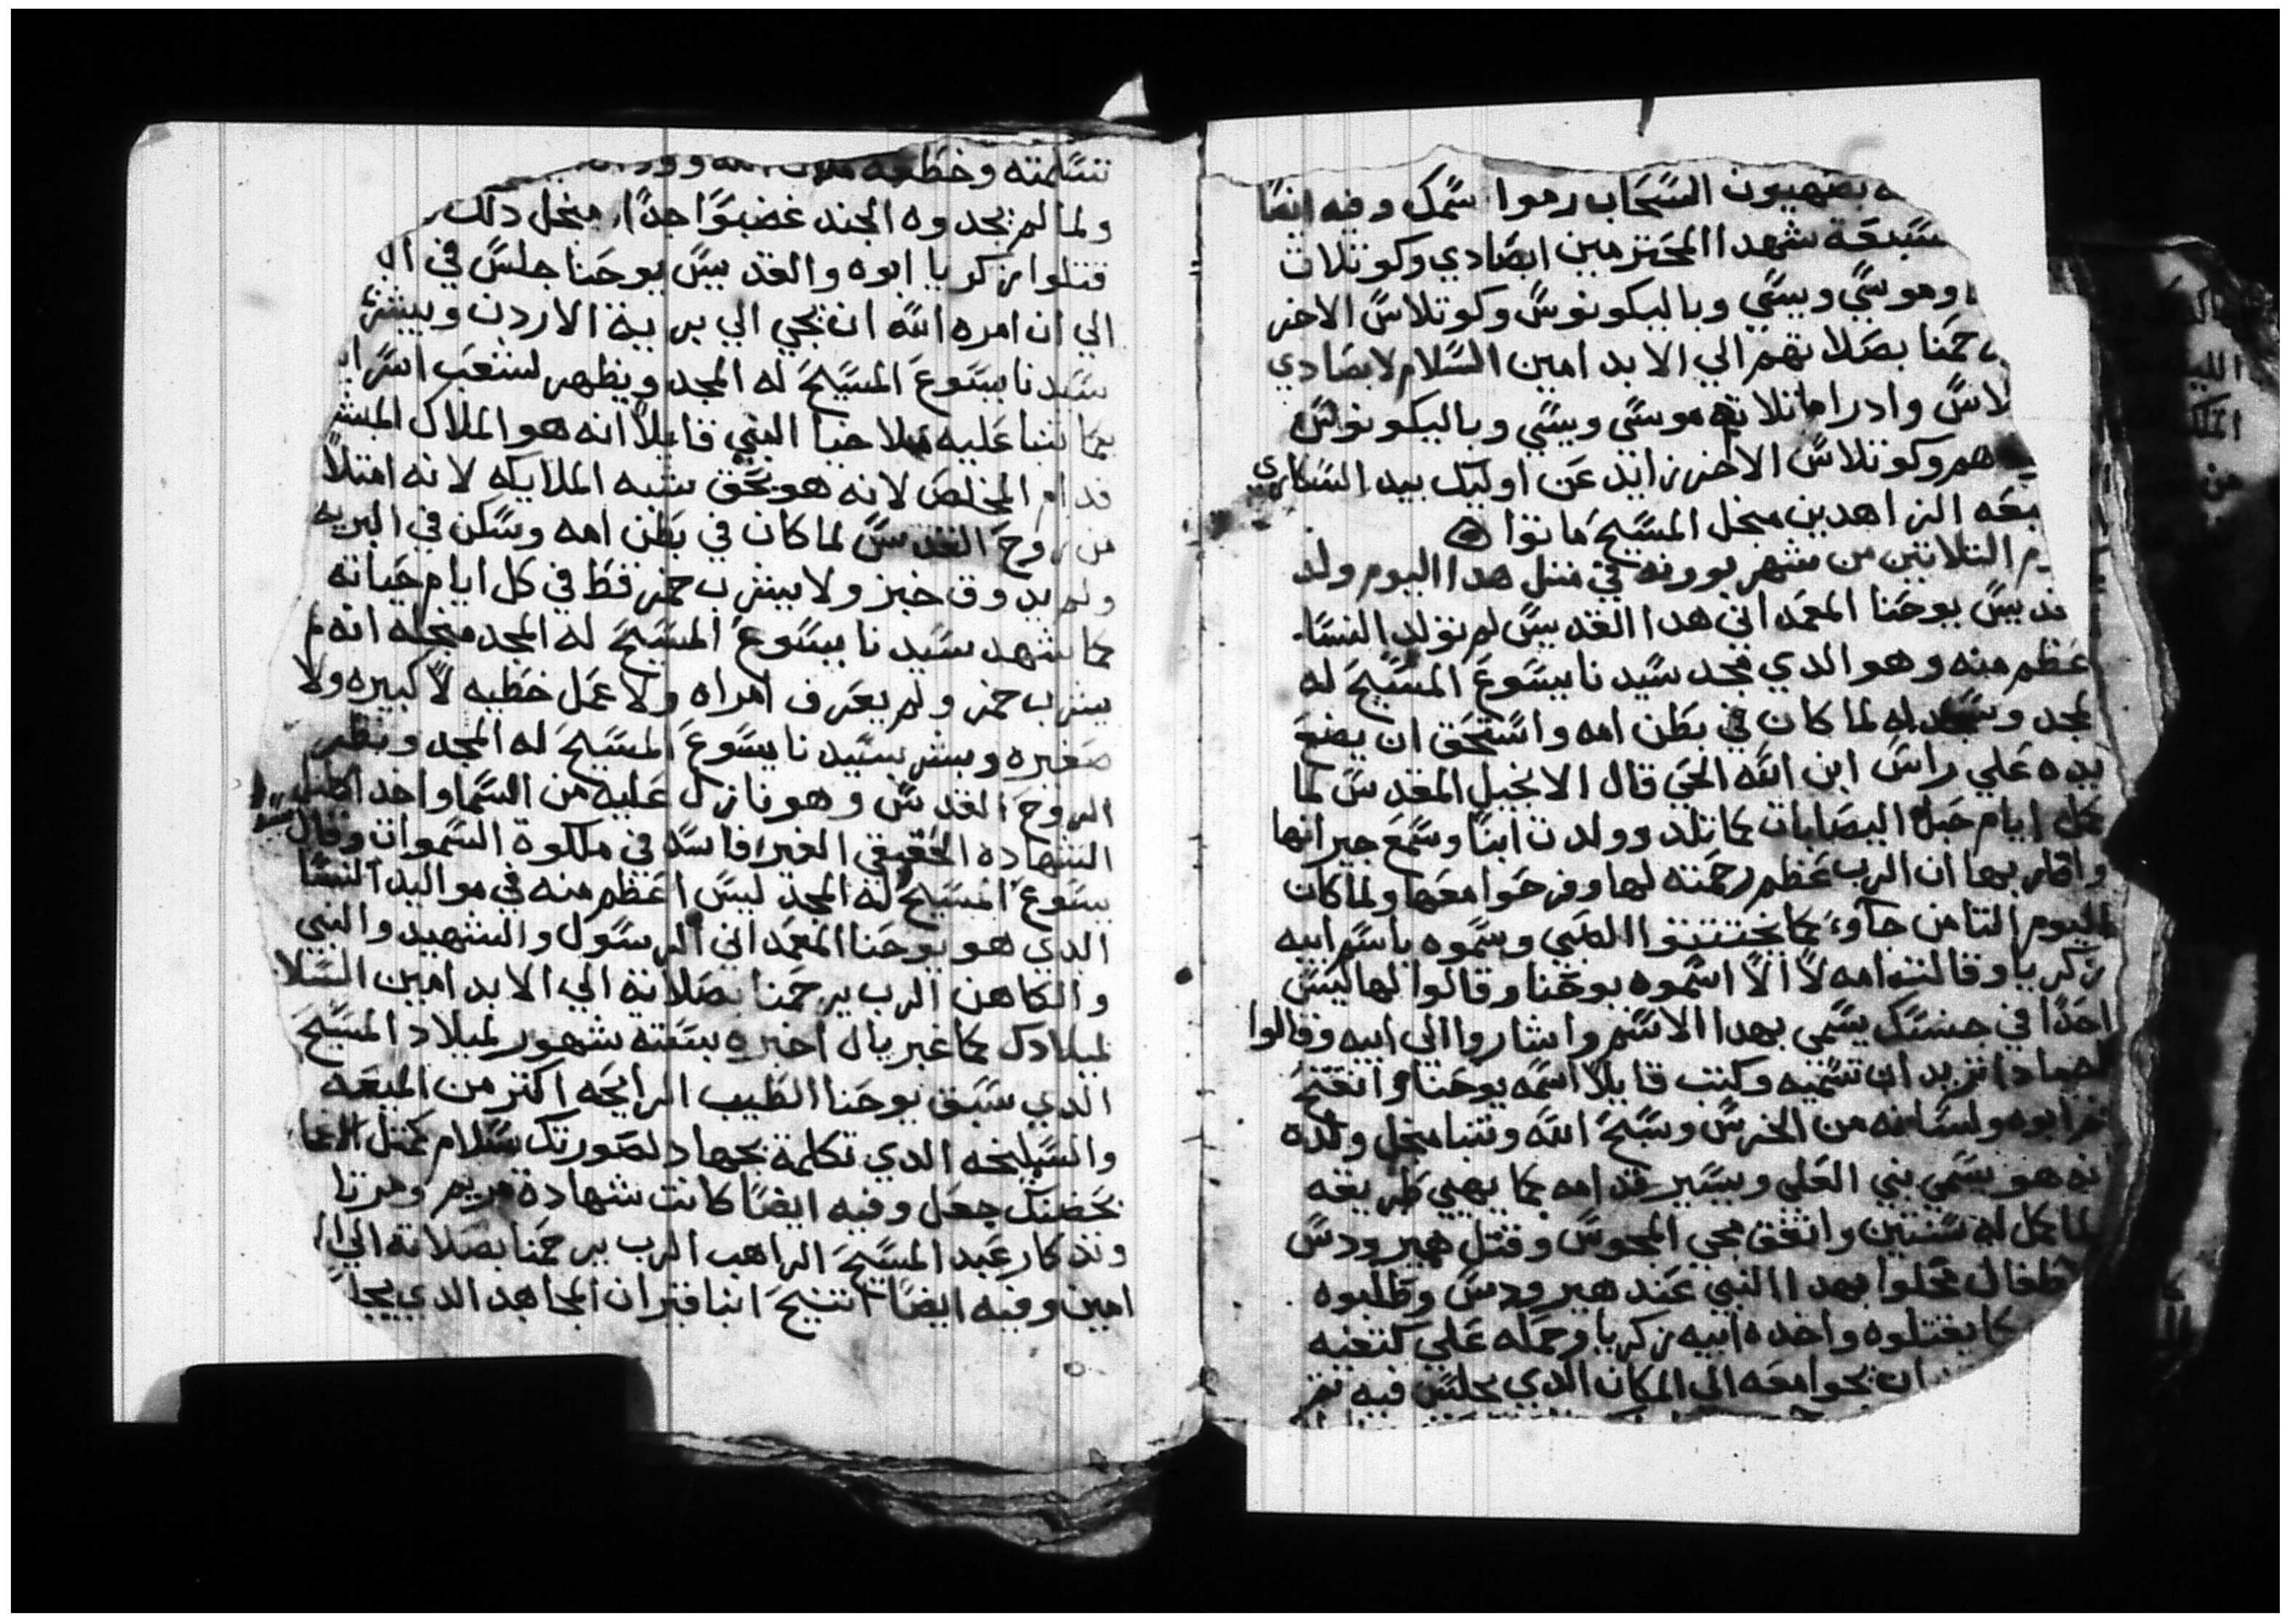 بصهيون السحاب رموا سمك وفيه ايضا
سبعة شهدا المحترمين ابصادي وكوتلات
وموسي وبيسي وباليكونوس وكوتلاس الاخر
حمنا بصلاتهم الي الابد امين السلام لابصادي
لاس وادراما تلاته موسي وبيسي وباليكونوس
هم وكوتلاس الاخر زايد عن اوليك بيد السكاري
بعه الزاهدين منجل المسيح ماتوا
م التلاتين من شهر بوونه في متل هدا اليوم ولد
قديس يوحنا المعمداني هدا القديس لم تولد النسا
عظم منه وهو الدي مجد سيدنا يسوع المسيح له
لمجد وسجد له لما كان في بطن امه واستحق ان يضع
يده علي راس ابن الله الحي قال الانجيل المقدس لما
كمل ايام حبل اليصابات كما تلد وولدت ابنا وسمع جيرانها
واقاربها ان الرب عظم رحمته لها وفرحوا معها ولما كان
اليوم التامن جآوء كما يختتنوا الصبي وسموه باسم ابيه
زكريا وقالت امه لا الا اسموه يوحنا وقالوا لها ليس
احدا في جنسك يسمي بهدا الاسم واشاروا الي ابيه وقالوا
لهمادا تريد ان تسميه وكتب قايلا اسمه يوحنا وانفتح
فم ابوه ولسانه من الخرس وسبح الله وتنبا منجل ولده
نه هو يسمي نبي العلي ويسير قدامه كما يهيي طريقه
لما كمل له سنتين واتفق مجي المجوس وقتل هيرودس
طفال محلوا بهدا النبي عند هيرودس وطلبوه
كما يقتلوه واخده ابيه زكريا وحمله علي كتفيه
ان يجوا معه الي المكان الدي يجلس فيه تم
تسلمته وخطفه
ولما لم يجدوه الجند غضبوا جدا منجل دلك
قتلوا زكريا ابوه والقديس يوحنا جلس في
الي ان امره الله ان يجي الي برية الاردن ويبشر
سيدنا يسوع المسيح له المجد ويظهر لشعب اسرا
كما تنبا عليه ملاخيا النبي قايلا انه هو الملاك المبشر
قدام المخلص لانه هو بحق شبه الملايكه لانه امتلا
من روح القدس لما كان في بطن امه وسكن في البريه
ولم يدوق خبز ولا يشرب خمر قط في كل ايام حياته
كما شهد سيدنا يسوع المسيح له المجد منجله انه لم
يشرب خمر ولم يعرف امراه ولا عمل خطيه لا كبيره ولا
صغيره وبشر بسيدنا يسوع المسيح له المجد ونظر
الروح القدس وهو نازل عليه من السما واخد اكليل
الشهاده الحقيقي الغير فاسد في ملكوة السموات وقال
يسوع المسيح له المجد ليس اعظم منه في مواليد النسا
الدي هو يوحنا المعمداني الرسول والشهيد والنبي
والكاهن الرب يرحمنا بصلاته الي الابد امين السلا
لميلادك كما غبريال اخبره بستة شهور لميلاد المسيح
الدي سبق يوحنا الطيب الرايحه اكتر من الميعه
والسليخه الدي تكلمة بجهاد لصورتك سلام كمتل
بحضنك جعل وفيه ايضا كانت شهادة مريم ومرتا
وتدكار عبد المسيح الراهب الرب يرحمنا بصلاته الي
امين وفيه ايضا انتيح انبا قتران المجاهد الدي